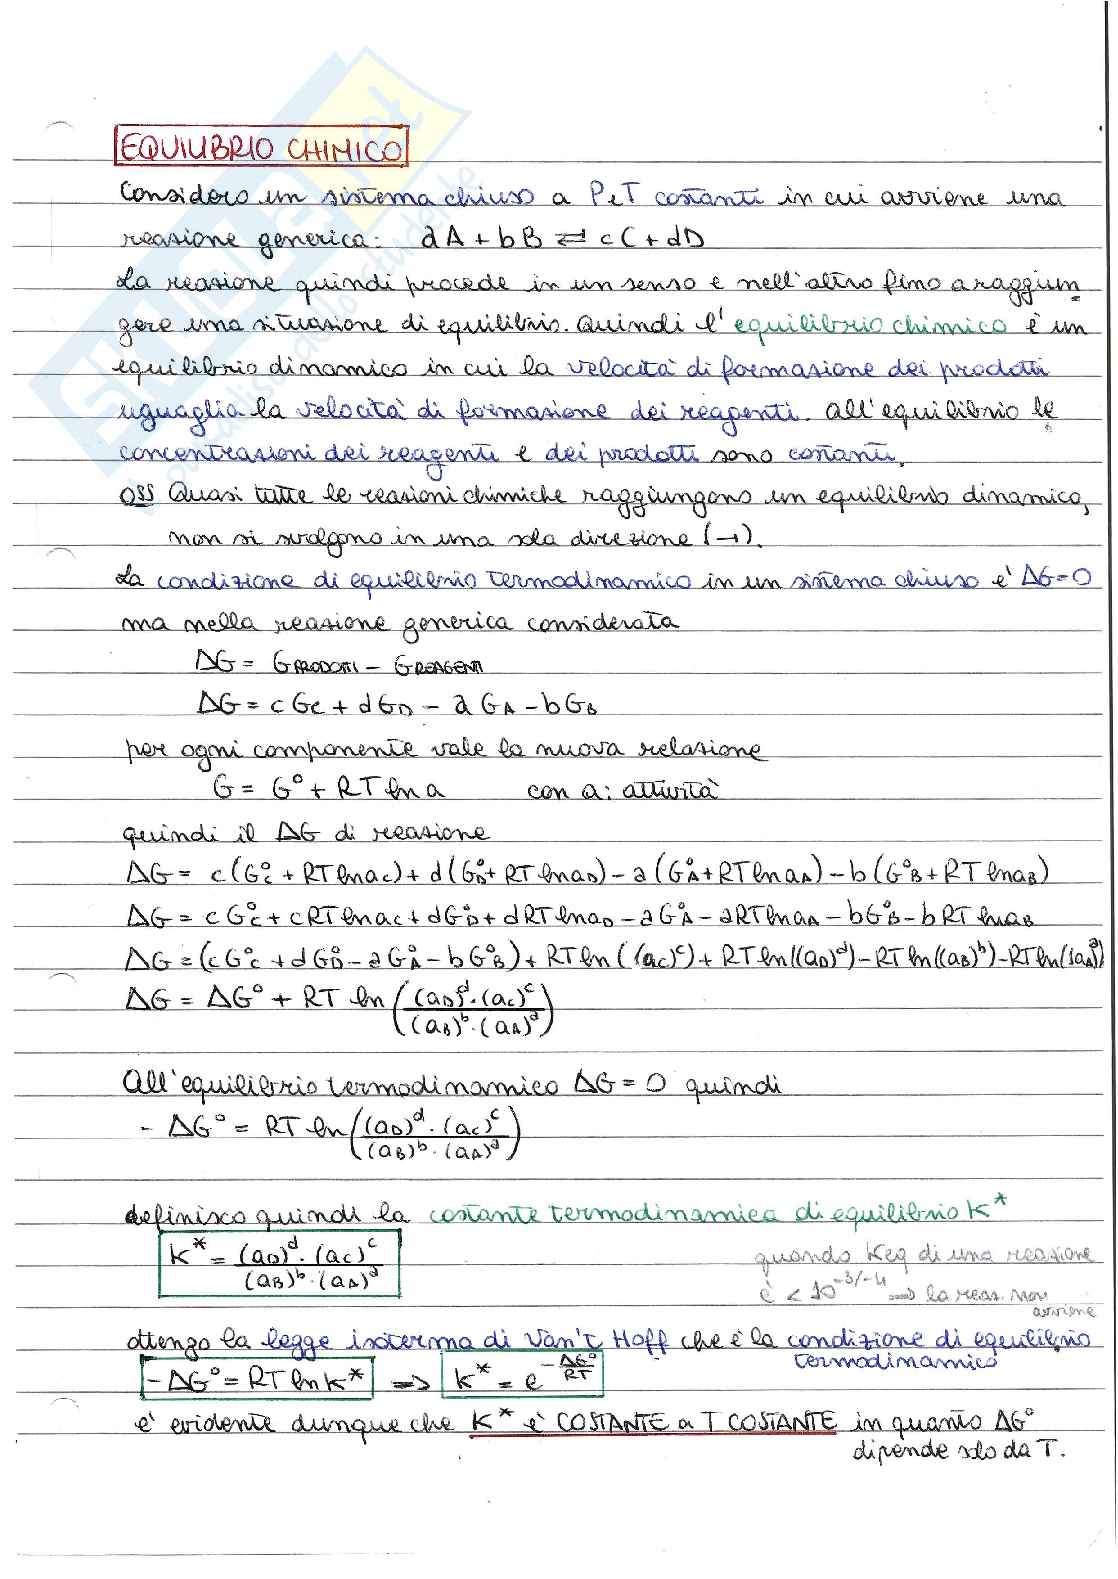 EQUILIBRIO CHIMICO
Considero un sistema chiuso a P e T costanti in cui avviene una
reazione generica: aA + bB ⇌ cC + dD
La reazione quindi procede in un senso e nell'altro fino a raggiun
gere una situazione di equilibrio. Quindi l'equilibrio chimico è un
equilibrio dinamico in cui la velocità di formazione dei prodotti
uguaglia la velocità di formazione dei reagenti. All'equilibrio le
concentrazioni dei reagenti e dei prodotti sono costanti.
OSS Quasi tutte le reazioni chimiche raggiungono un equilibrio dinamico,
non si svolgono in una sola direzione (→).
La condizione di equilibrio termodinamico in un sistema chiuso è ΔG=0
ma nella reazione generica considerata
ΔG = GPRODOTTI - GREAGENTI
ΔG = cGC + dGD - aGA - bGB
per ogni componente vale la nuova relazione
G = G° + RT ln a con a: attività
quindi il ΔG di reazione
ΔG = c(G°C + RT ln aC) + d(G°D + RT ln aD) - a(G°A + RT ln aA) - b(G°B + RT ln aB)
ΔG = cG°C + cRT ln aC + dG°D + dRT ln aD - aG°A - aRT ln aA - bG°B - bRT ln aB
ΔG = (cG°C + dG°D - aG°A - bG°B) + RT ln((aC)^c) + RT ln((aD)^d) - RT ln((aB)^b) - RT ln((aA)^a)
ΔG = ΔG° + RT ln((aD)^d · (aC)^c / (aB)^b · (aA)^a)
All'equilibrio termodinamico ΔG = 0 quindi
- ΔG° = RT ln((aD)^d · (aC)^c / (aB)^b · (aA)^a)
definisco quindi la costante termodinamica di equilibrio K*
K* = (aD)^d · (aC)^c / (aB)^b · (aA)^a
quando Keq di una reazione
è < 10^-3/-4 ⇒ la reaz. non
avviene
ottengo la legge isoterma di Van't Hoff che è la condizione di equilibrio
termodinamico
-ΔG° = RT ln K* ⇒ K* = e^-ΔG°/RT
è evidente dunque che K* è COSTANTE a T COSTANTE in quanto ΔG°
dipende solo da T.